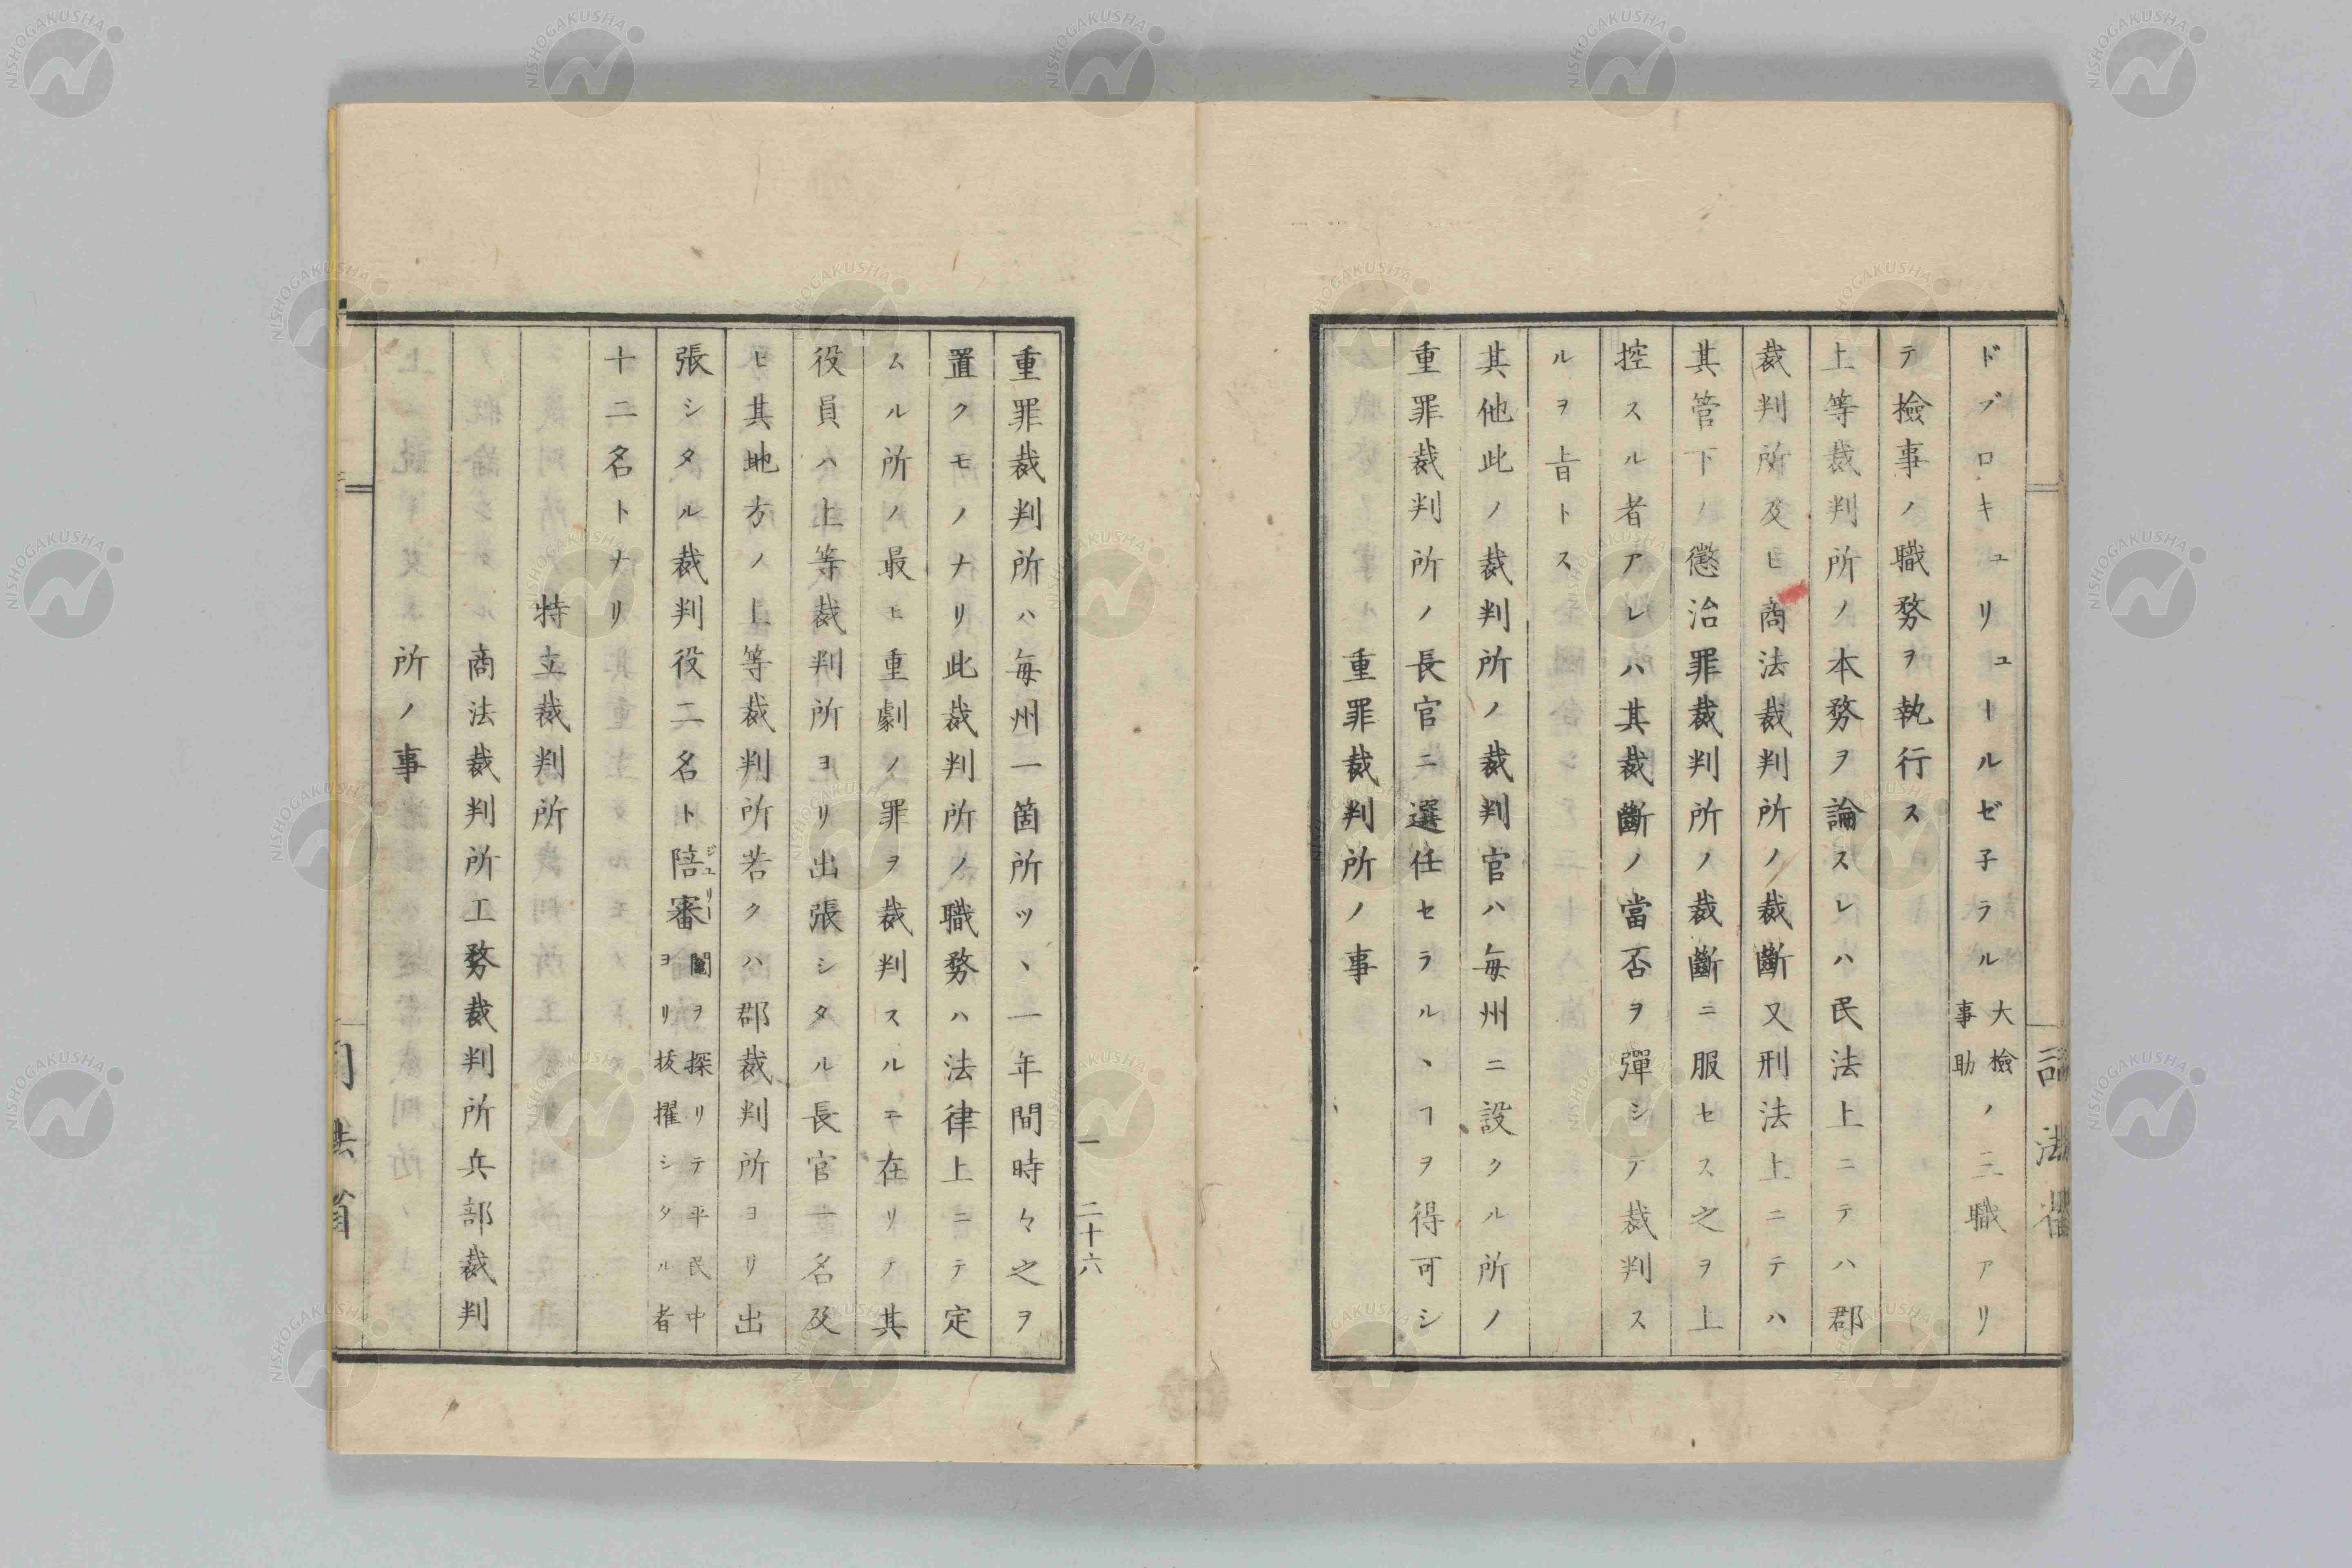 ドブロキュリュールゼ子ラル大檢事助ノ三職アリ
テ檢事ノ職務ヲ執行ス
上等裁判所ノ本務ヲ論スレハ民法上ニテハ郡
裁判所及ヒ商法裁判所ノ裁斷又刑法上ニテハ
其管下ノ懲治罪裁判所ノ裁斷ニ服セス之ヲ上
控スル者アレハ其裁斷ノ當否ヲ彈シテ裁判ス
ルヲ旨トス
其他此ノ裁判所ノ裁判官ハ每州ニ設クル所ノ
重罪裁判所ノ長官ニ選任セラルヽヿヲ得可シ
重罪裁判所ノ事
重罪裁判所ハ每州一箇所ツヽ一年間時々之ヲ
置クモノナリ此裁判所ノ職務ハ法律上ニテ定
ムル所ノ最モ重劇ノ罪ヲ裁判スルニ在リテ其
役員ハ上等裁判所ヨリ出張シタル長官一名及
ヒ其地方ノ上等裁判所若クハ郡裁判所ヨリ出
張シタル裁判役二名ト陪審ジュリー鬮ヲ探リテ平民中ヨリ拔擢シタル者
十二名トナリ
特立裁判所
商法裁判所工務裁判所兵部裁判
所ノ事
二十六
司法省
NISHOGAKUSHA